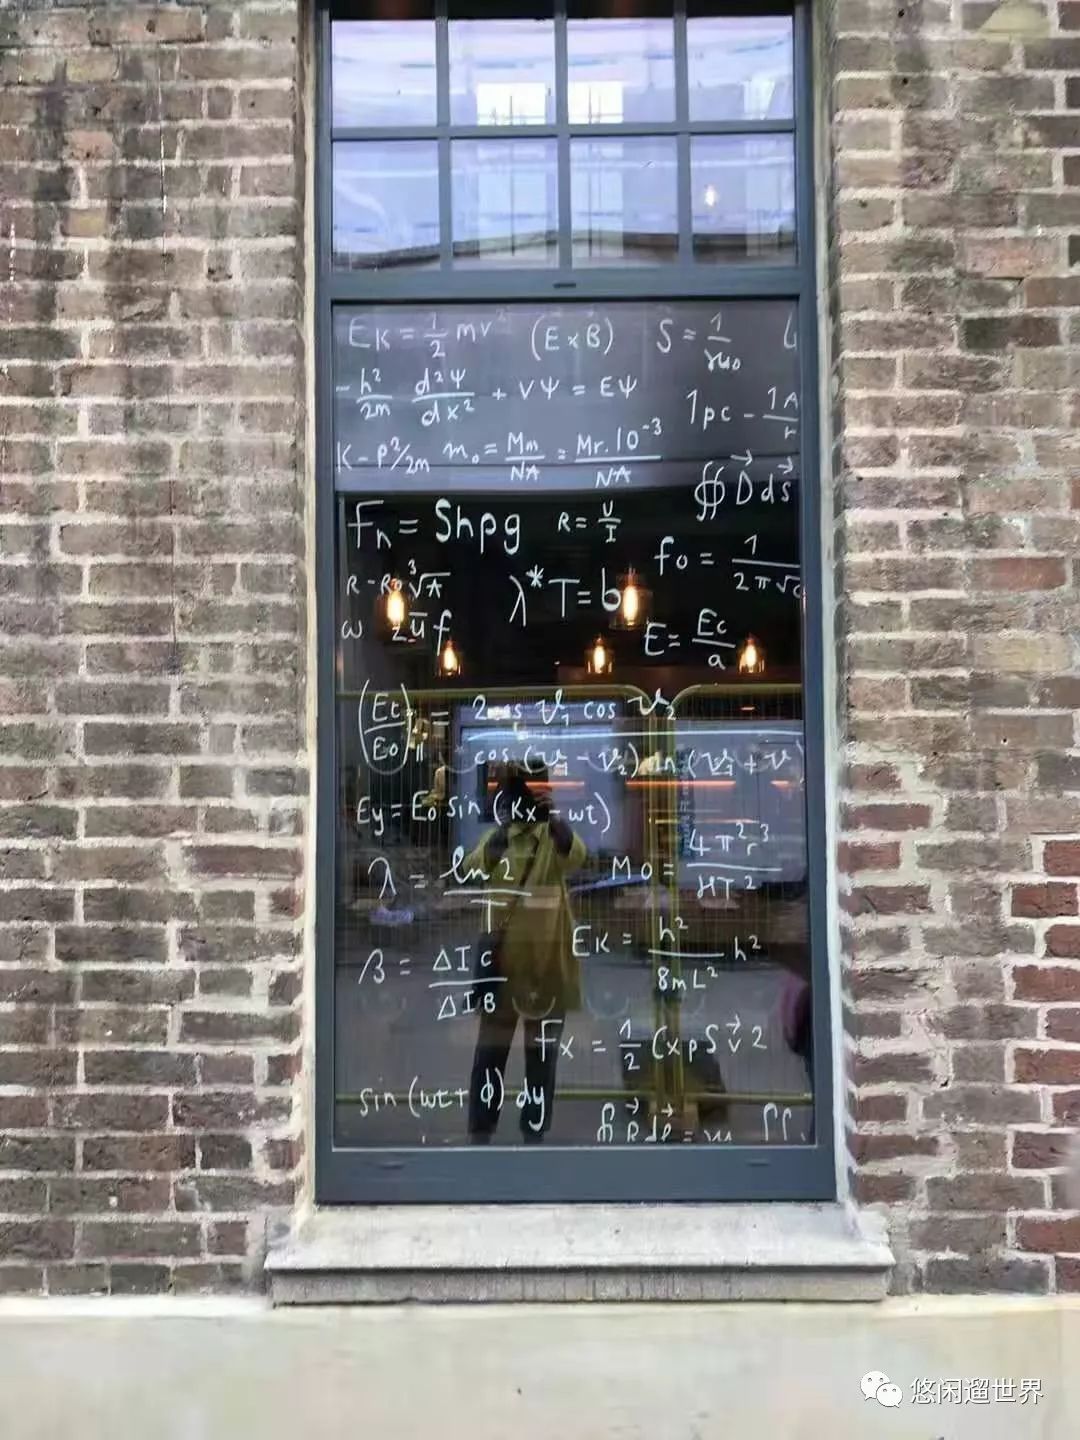 EK = 1/2 mv² (E×B) S = 1/
-h²/2m d²Ψ/dx² + VΨ = EΨ 1pc - 1A/r
K - p²/2m m₀ = Mm/NA = Mr.10⁻³/NA
∯ D⃗ ds⃗
Fn = Shpg R = U/I
f₀ = 1/2π√
R - R₀ ³√A λ*T = b
ω f
E = Ec/a
(Et/E₀) = 2cos ϑ₁ cos ϑ₂ / cos (ϑ₁ - ϑ₂) (ϑ₁ + ϑ
Ey = E₀ sin (Kx - wt)
λ = ln 2/T M₀ = 4π²r³/HT²
EK = h²/8mL² h²
β = ΔIC/ΔIB
Fx = 1/2 CxpSv⃗2
sin (wt + ϕ) dy
悠闲遛世界